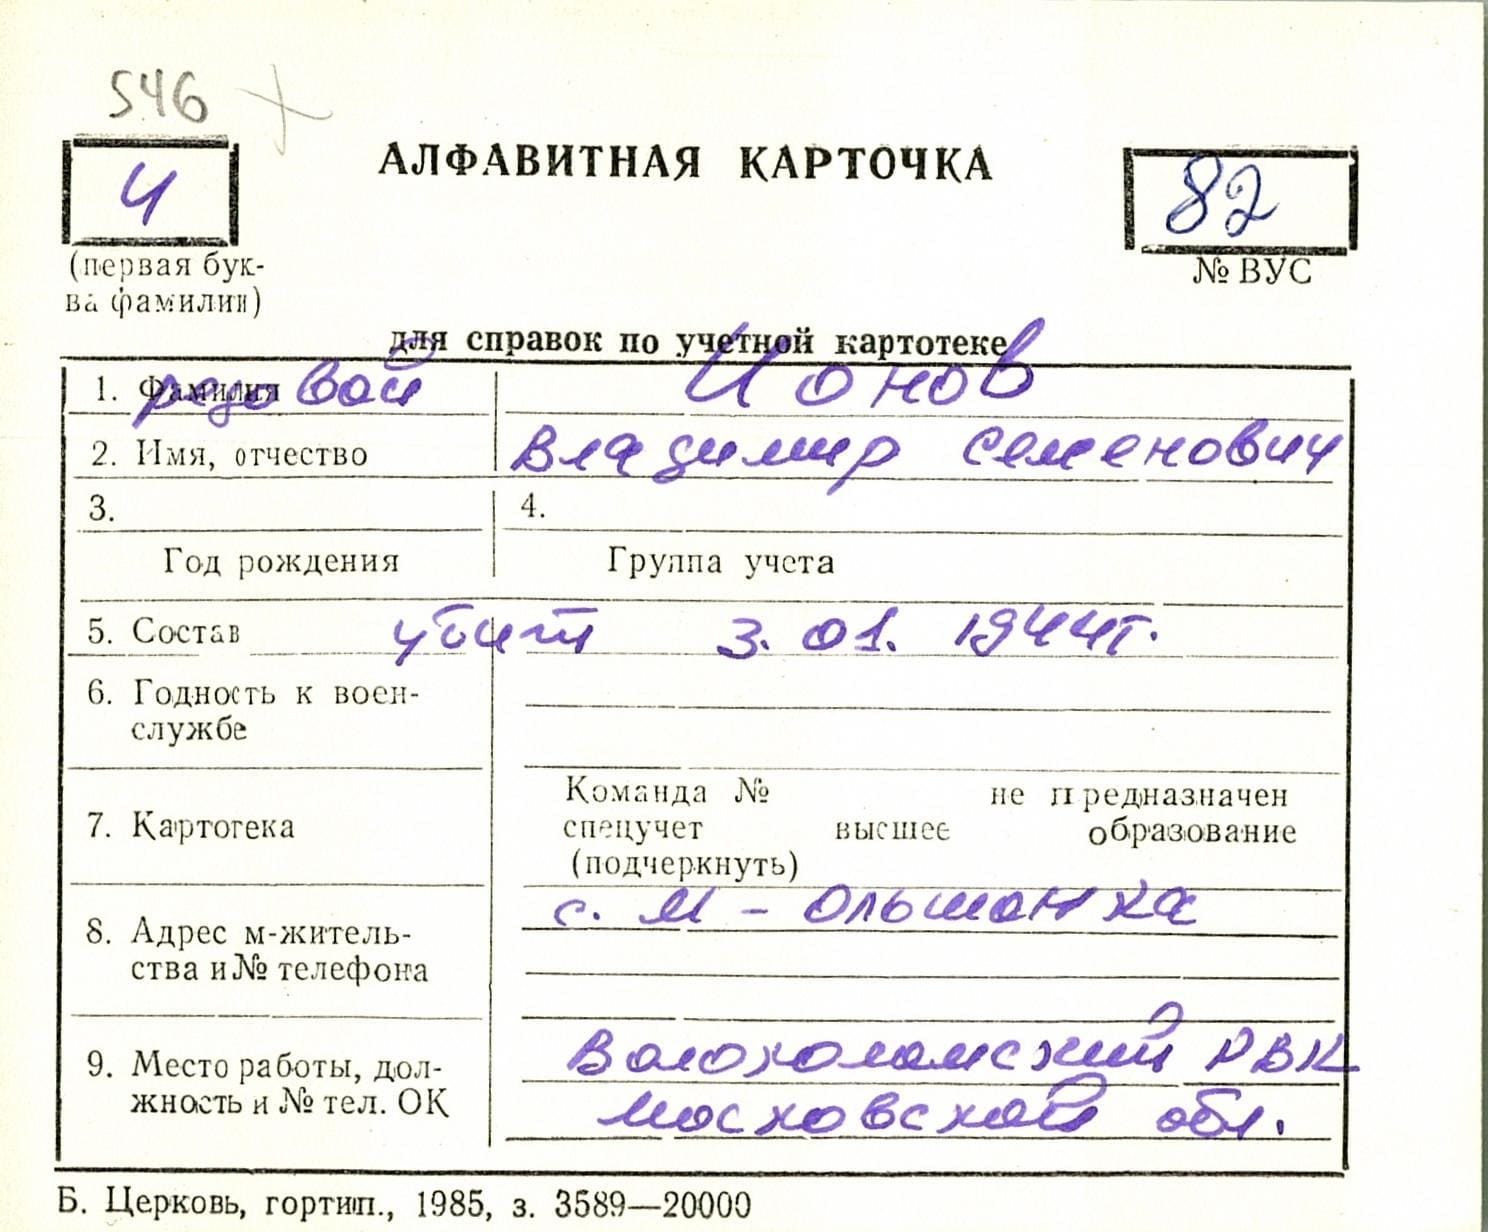 546
И
АЛФАВИТНАЯ КАРТОЧКА
82
(первая бук-
ва фамилии)
№ ВУС
для справок по учетной картотеке
1. Фамилия рядовой Ионов
2. Имя, отчество Владимир Семенович
3. 4.
Год рождения Группа учета
5. Состав убит 3. 01. 1944г.
6. Годность к воен-
службе
7. Картотека
Команда № не предназначен
спецучет высшее образование
(подчеркнуть)
8. Адрес м-житель-
ства и № телефона
с. М - Ольшанка
9. Место работы, дол-
жность и № тел. ОК
Волохоламский РВК
Московской обл.
Б. Церковь, гортип., 1985, з. 3589—20000